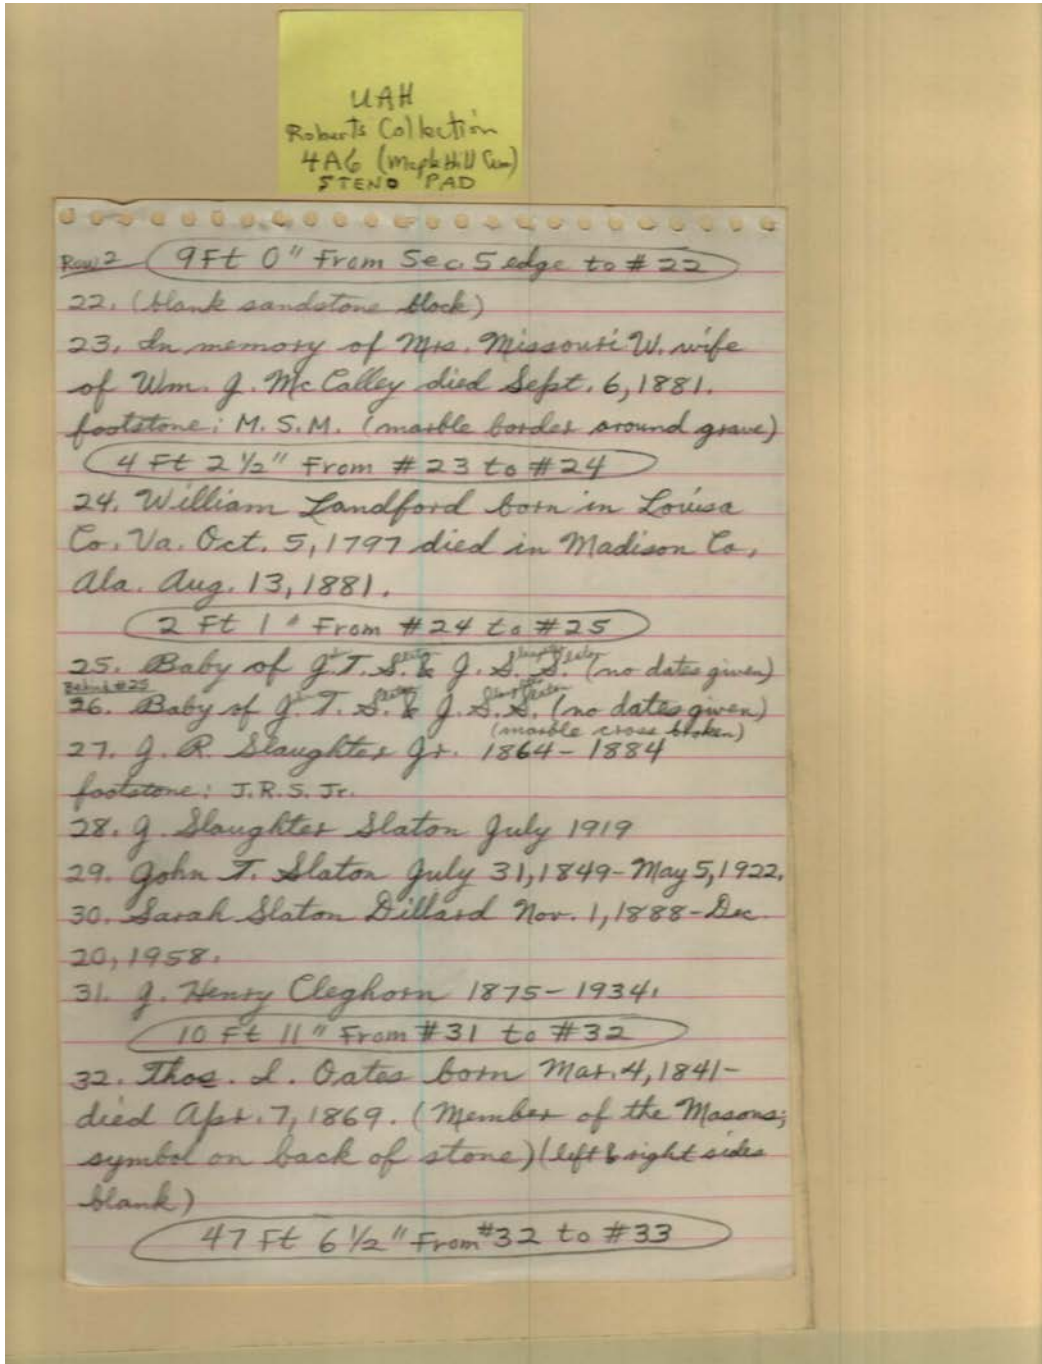 UAH
Roberts Collection
4A6 (Maple Hill Cem)
STENO PAD
Row 2 9Ft 0" From Sec. 5 edge to #22
22. (blank sandstone block)
23. In memory of Mrs. Missouri W. wife
of Wm. J. McCalley died Sept. 6, 1881.
footstone: M.S.M. (marble border around grave)
4 Ft 2 1/2" From #23 to #24
24. William Landford born in Louisa
Co. Va. Oct. 5, 1797 died in Madison Co,
Ala. Aug. 13, 1881.
2 Ft 1" From #24 to #25
Slaton Slaughter Slaton
25. Baby of J.T.S. & J.S.S. (no dates given)
Behind #25 Slaton Slaughter Slaton
26. Baby of J.T.S. & J.S.S. (no dates given)
(marble cross broken)
27. J.R. Slaughter Jr. 1864-1884
footstone: J.R.S. Jr.
28. J. Slaughter Slaton July 1919
29. John T. Slaton July 31, 1849-May 5, 1922.
30. Sarah Slaton Dillard Nov. 1, 1888-Dec.
20, 1958.
31. J. Henry Cleghorn 1875-1934.
10 Ft 11" From #31 to #32
32. Thos. I. Oates born Mar. 4, 1841-
died Apr. 7, 1869. (Member of the Masons;
symbol on back of stone) (left & right sides
blank)
47 Ft 6 1/2" From #32 to #33